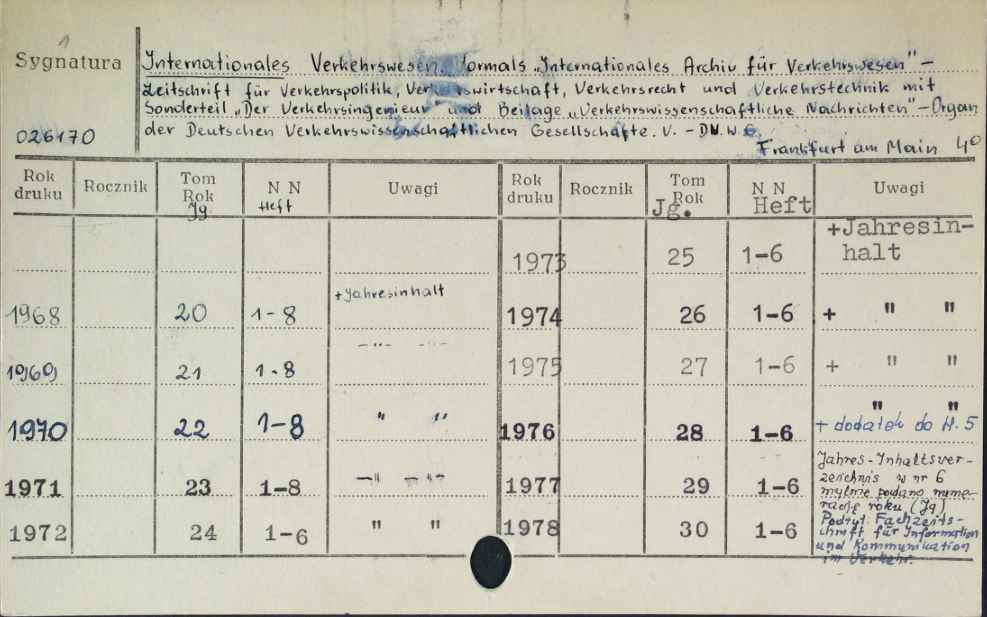 1
Sygnatura
026170
Internationales Verkehrswesen, formals „Internationales Archiv für Verkehrswesen" –
Zeitschrift für Verkehrspolitik, Verkehrswirtschaft, Verkehrsrecht und Verkehrstechnik mit
Sonderteil „Der Verkehrsingenieur" und Beilage „Verkehrswissenschaftliche Nachrichten" – Organ
der Deutschen Verkehrswissenschaftlichen Gesellschaft e. V. – D.V.W.G.
Frankfurt am Main 4°
Rok druku Rocznik Tom Rok Jg N N Heft Uwagi Rok druku Rocznik Tom Rok Jg. N N Heft Uwagi
1973 25 1-6 +Jahresin-
halt
1968 20 1-8 +Jahresinhalt 1974 26 1-6 + " "
1969 21 1-8 -"- -"- 1975 27 1-6 + " "
1970 22 1-8 " " 1976 28 1-6 " "
+ dodatek do H. 5
1971 23 1-8 -" -"- 1977 29 1-6 Jahres-Inhaltsver-
zeichnis w nr 6
mylnie podano nume-
rację roku (Jg)
1972 24 1-6 " " 1978 30 1-6 Podtyt. Fachzeits-
chrift für Information
und Kommunikation
im Verkehr.